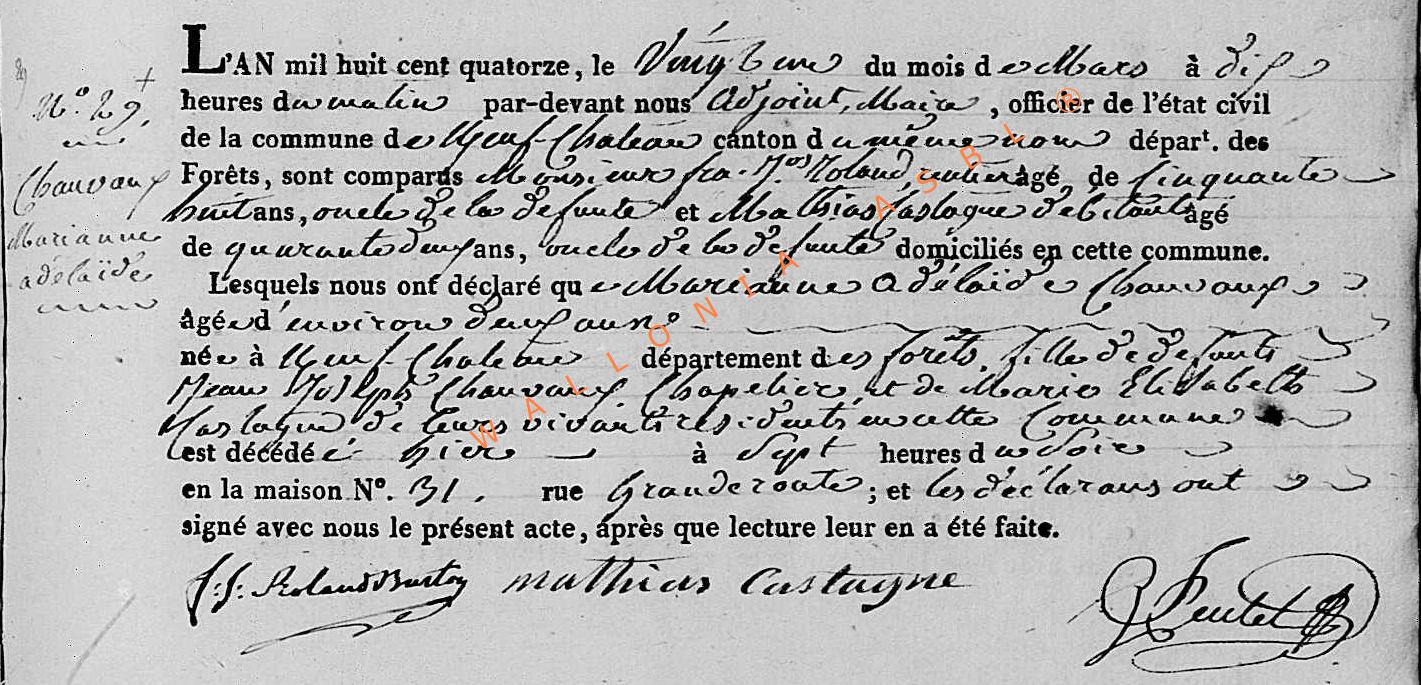 N.° 29.
Chauvaux
Marianne
adelaïde
L'AN mil huit cent quatorze, le Vingt un du mois de Mars à dix
heures du matin par-devant nous Adjoint, Maire, officier de l'état civil
de la commune de Neuf-Chateau canton du même nom départ. des
Forêts, sont comparus Monsieur fra. Jos Roland, rentier âgé, de Cinquante
huit ans, oncle de la defunte et Mathias Castagne debitant âgé
de quarante deux ans, oncle de la defunte domiciliés en cette commune.
Lesquels nous ont déclaré que Marianne Adélaïde Chauvaux
âgée d'environ deux ans
née à Neuf-Chateau département des forêts, fille de defunts
Jean Joseph Chauvaux Chapelier et de Marie Elisabeth
Castagne de leurs vivant residents en cette Commune
est décédée hier à Sept heures du Soir
en la maison N°. 31. rue Grande route; et les déclarans ont
signé avec nous le présent acte, après que lecture leur en a été faite.
f: j: Roland Burton mathias Castagne
WALLONIA ASBL ®